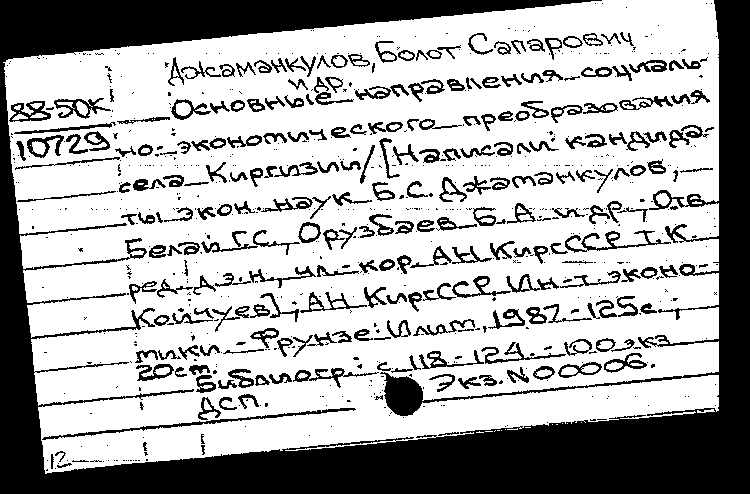 Джаманкулов, Болот Сапарович
и др.
88-50К
10729
Основные направления социаль-
но-экономического преобразования
села Киргизии/[Написали: кандида-
ты экон. наук Б.С. Джаманкулов,
Белай Г.С., Орузбаев Б.А. и др.; Отв.
ред. д.э.н., чл.-кор. АН КиргССР Т.К.
Койчуев]; АН КиргССР, Ин-т. эконо-
мики. - Фрунзе: Илим, 1987. - 125с.;
20см.
Библиогр.: с. 118-124. - 100 экз
ДСП. Экз. N 00006.
12